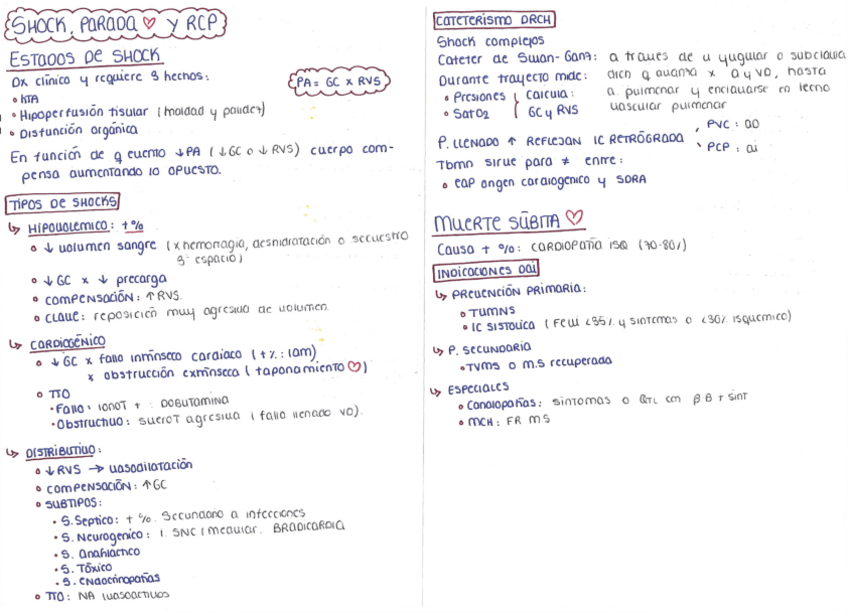 SHOCK, PARADA ♡ Y RCP
ESTADOS DE SHOCK
Dx clínico y requiere 3 hechos:
• hTA
• Hipoperfusión tisular (frialdad y palidez)
• Disfunción orgánica
PA = GC x RVS
En función de q evento ↓PA (↓GC o ↓RVS) cuerpo com-
pensa aumentando lo opuesto.
TIPOS DE SHOCKS
↳ HIPOVOLEMICO: +%
• ↓ volumen sangre (x hemorragia, deshidratación o secuestro
3º espacio)
• ↓GC x ↓ precarga
• COMPENSACIÓN: ↑RVS
• CLAVE: reposición muy agresiva de volumen.
↳ CARDIOGÉNICO
• ↓GC x fallo intrínseco cardiaco (+%: IAM)
x obstrucción extrínseca (taponamiento ♡)
• TTO
• Fallo: IONOT + : DOBUTAMINA
• Obstructivo: sueroT agresiva (fallo llenado VD).
↳ DISTRIBUTIVO:
• ↓RVS → vasodilatación
• COMPENSACIÓN: ↑GC
• SUBTIPOS:
• S. Septico: +%. Secundario a infecciones
• S. Neurogenico: l. SNC / medular. BRADICARDIA
• S. Anafiláctico
• S. Tóxico
• S. Endocrinopatías
• TTO: NA (vasoactivos
CATETERISMO DRCH
Shock complejos
Cateter de Swan-Ganz: a traves de v yugular o subclavia
Durante trayecto mide: drch q avanza x AD y VD, hasta
• Presiones } Calcula: a. pulmonar y enclavarse en lecho
• SatO2 GC y RVS vascular pulmonar
P. LLENADO ↑ REFLEJAN IC RETRÓGRADA , PVC: AD
PCP: AI
Tbmn sirve para ≠ entre:
• EAP origen cardiogenico y SDRA
MUERTE SÚBITA ♡
Causa + %: CARDIOPATÍA ISQ (70-80%)
INDICACIONES DAI
↳ PREVENCIÓN PRIMARIA:
• TVMNS
• IC SISTOLICA (FEVI <35% y sintomas o <30% isquemico)
↳ P. SECUNDARIA
• TVMS o M.S recuperada
↳ ESPECIALES
• Canalopatías: sintomas o QTL con βB + sint
• MCH: FR MS